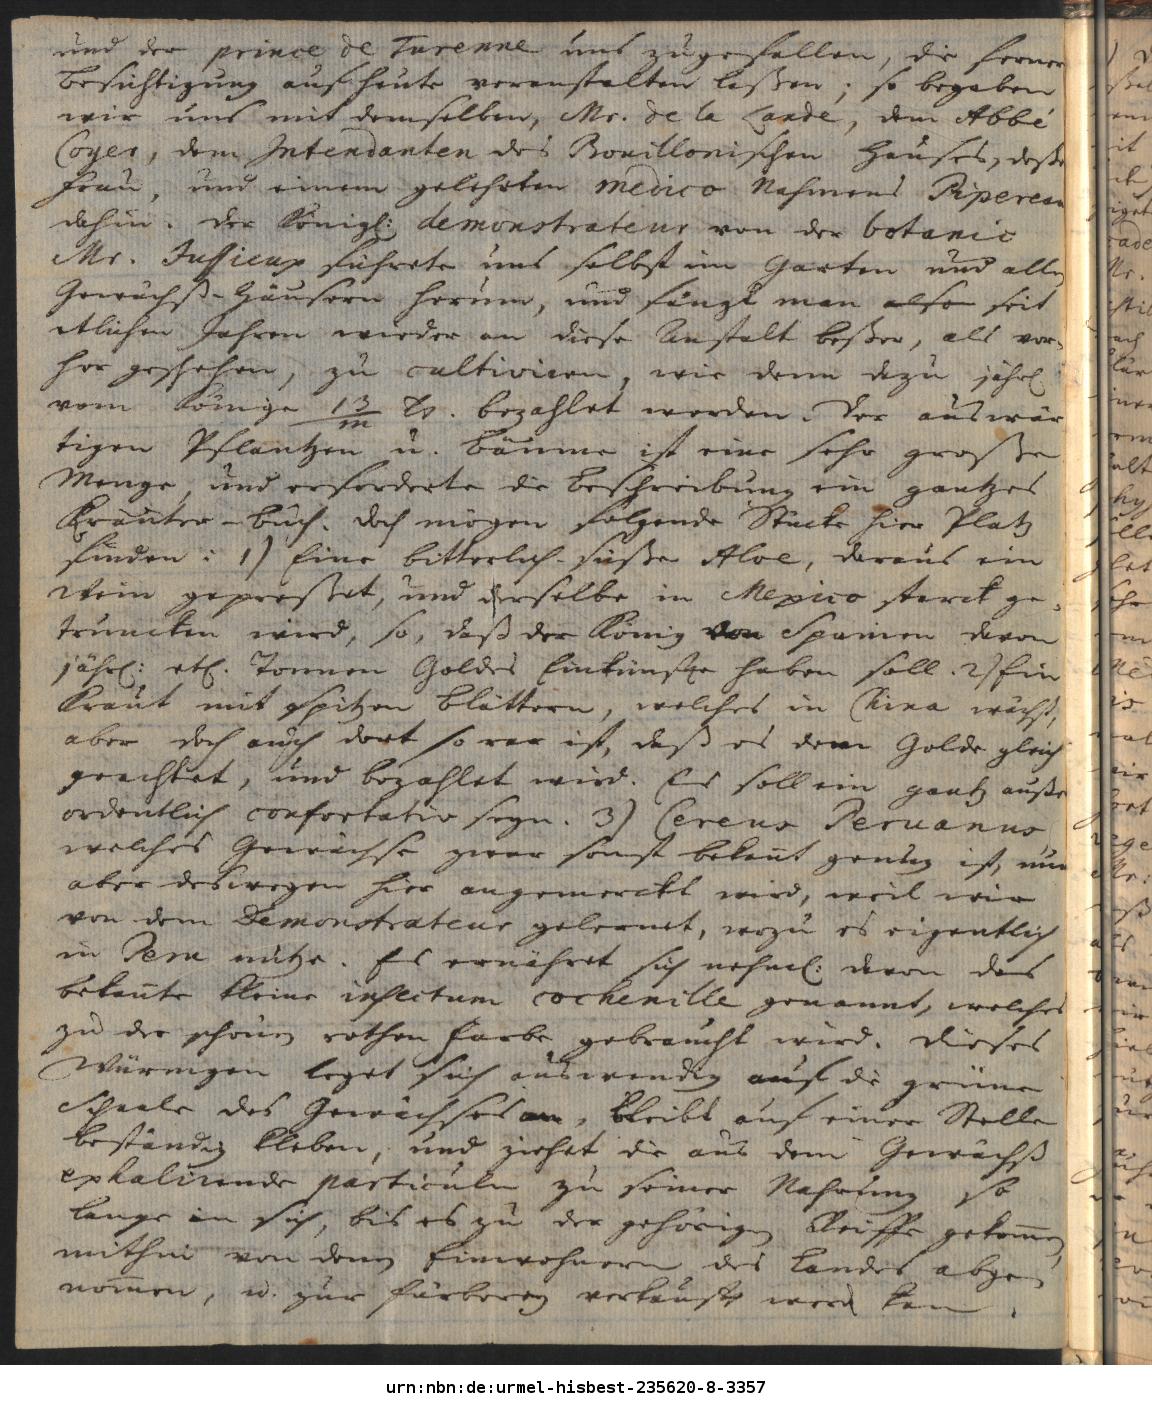 und der prince de Turenne uns zugefallen, die ferner
Besichtigung auf heute veranstalten laßen; so begaben
wir uns mit demselben, Mr. de la Lande, dem Abbé
Coyer, dem Intendanten des Bouillonischen Hauses, deße
Frau, und einem gelehrten medico Nahmens Pipereau
dahin. Der Königl: demonstrateur von der botanic
Mr. Jussieux führete uns selbst im Garten und allen
Gewächß-Häusern herum, und fängt man also seit
etlichen Jahren wieder an diese Anstalt beßer, als vor-
her geschehen, zu cultiviren, wie denn dazu jährl.
vom Könige 13/m . bezahlet werden. Der auswär
tigen Pflantzen u. Bäume ist eine sehr große
Menge, und erforderte die Beschreibung ein gantzes
Kräuter-buch. doch mögen folgende Stücke hier Platz
finden: 1) Eine bitterlich-süße Aloe, daraus ein
Wein gepreßet, und derselbe in Mexico starck ge-
truncken wird, so, daß der König von Spanien davon
jährl: etl. Tonnen Goldes Einkünffte haben soll. 2) Ein
Kraut mit spitzen Blättern, welches in China wächst,
aber doch auch dort so rar ist, daß es dem Golde gleich
geachtet, und bezahlet wird. Es soll ein gantz auße
ordentlich confortativ seyn. 3) Cereus Peruanus
welches Gewächse zwar sonst bekant genug ist, nun
aber deswegen hier angemerckt wird, weil wir
von dem Demonstrateur gelernet, wozu es eigentlich
in Peru nütze. Es ernähret sich nehml: davon das
bekante kleine insectum cochenille genannt, welches
zu der schönen rothen Farbe gebraucht wird. Dieses
Würmgen leget sich auswendig auf die grüne
Schaale des Gewächses an, bleibt auf einer Stelle
beständig kleben, und ziehet die aus dem Gewächß
exhalirende particuln zu seiner Nahrung so
lange in sich, bis es zu der gehörigen Reiffe gekommen,
mithin von denen Einwohnern des Landes abge
nommen, u. zur Färberey verkaufft werden kan.
urn:nbn:de:urmel-hisbest-235620-8-3357